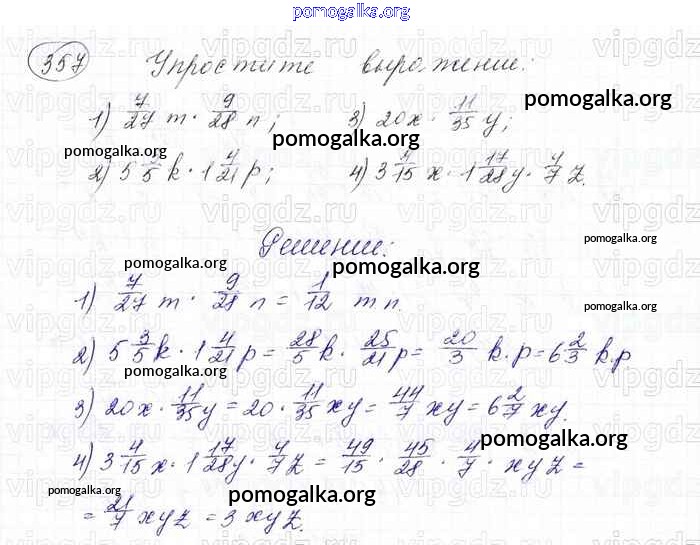 pomogalka.org
357 Упростите выражение:
1) 7/27 m · 9/28 n; 3) 20x · 11/35 y;
pomogalka.org
pomogalka.org
pomogalka.org
2) 5 3/5 k · 1 4/21 p; 4) 3 4/15 x · 1 17/28 y · 4/7 z.
pomogalka.org
Решение:
pomogalka.org
pomogalka.org
pomogalka.org
1) 7/27 m · 9/28 n = 1/12 m n.
pomogalka.org
2) 5 3/5 k · 1 4/21 p = 28/5 k · 25/21 p = 20/3 k · p = 6 2/3 k p
pomogalka.org
3) 20x · 11/35 y = 20 · 11/35 xy = 44/7 xy = 6 2/7 xy.
pomogalka.org
4) 3 4/15 x · 1 17/28 y · 4/7 z = 49/15 · 45/28 · 4/7 · xyz =
pomogalka.org
pomogalka.org
= 21/7 xyz = 3 xyz.
pomogalka.org